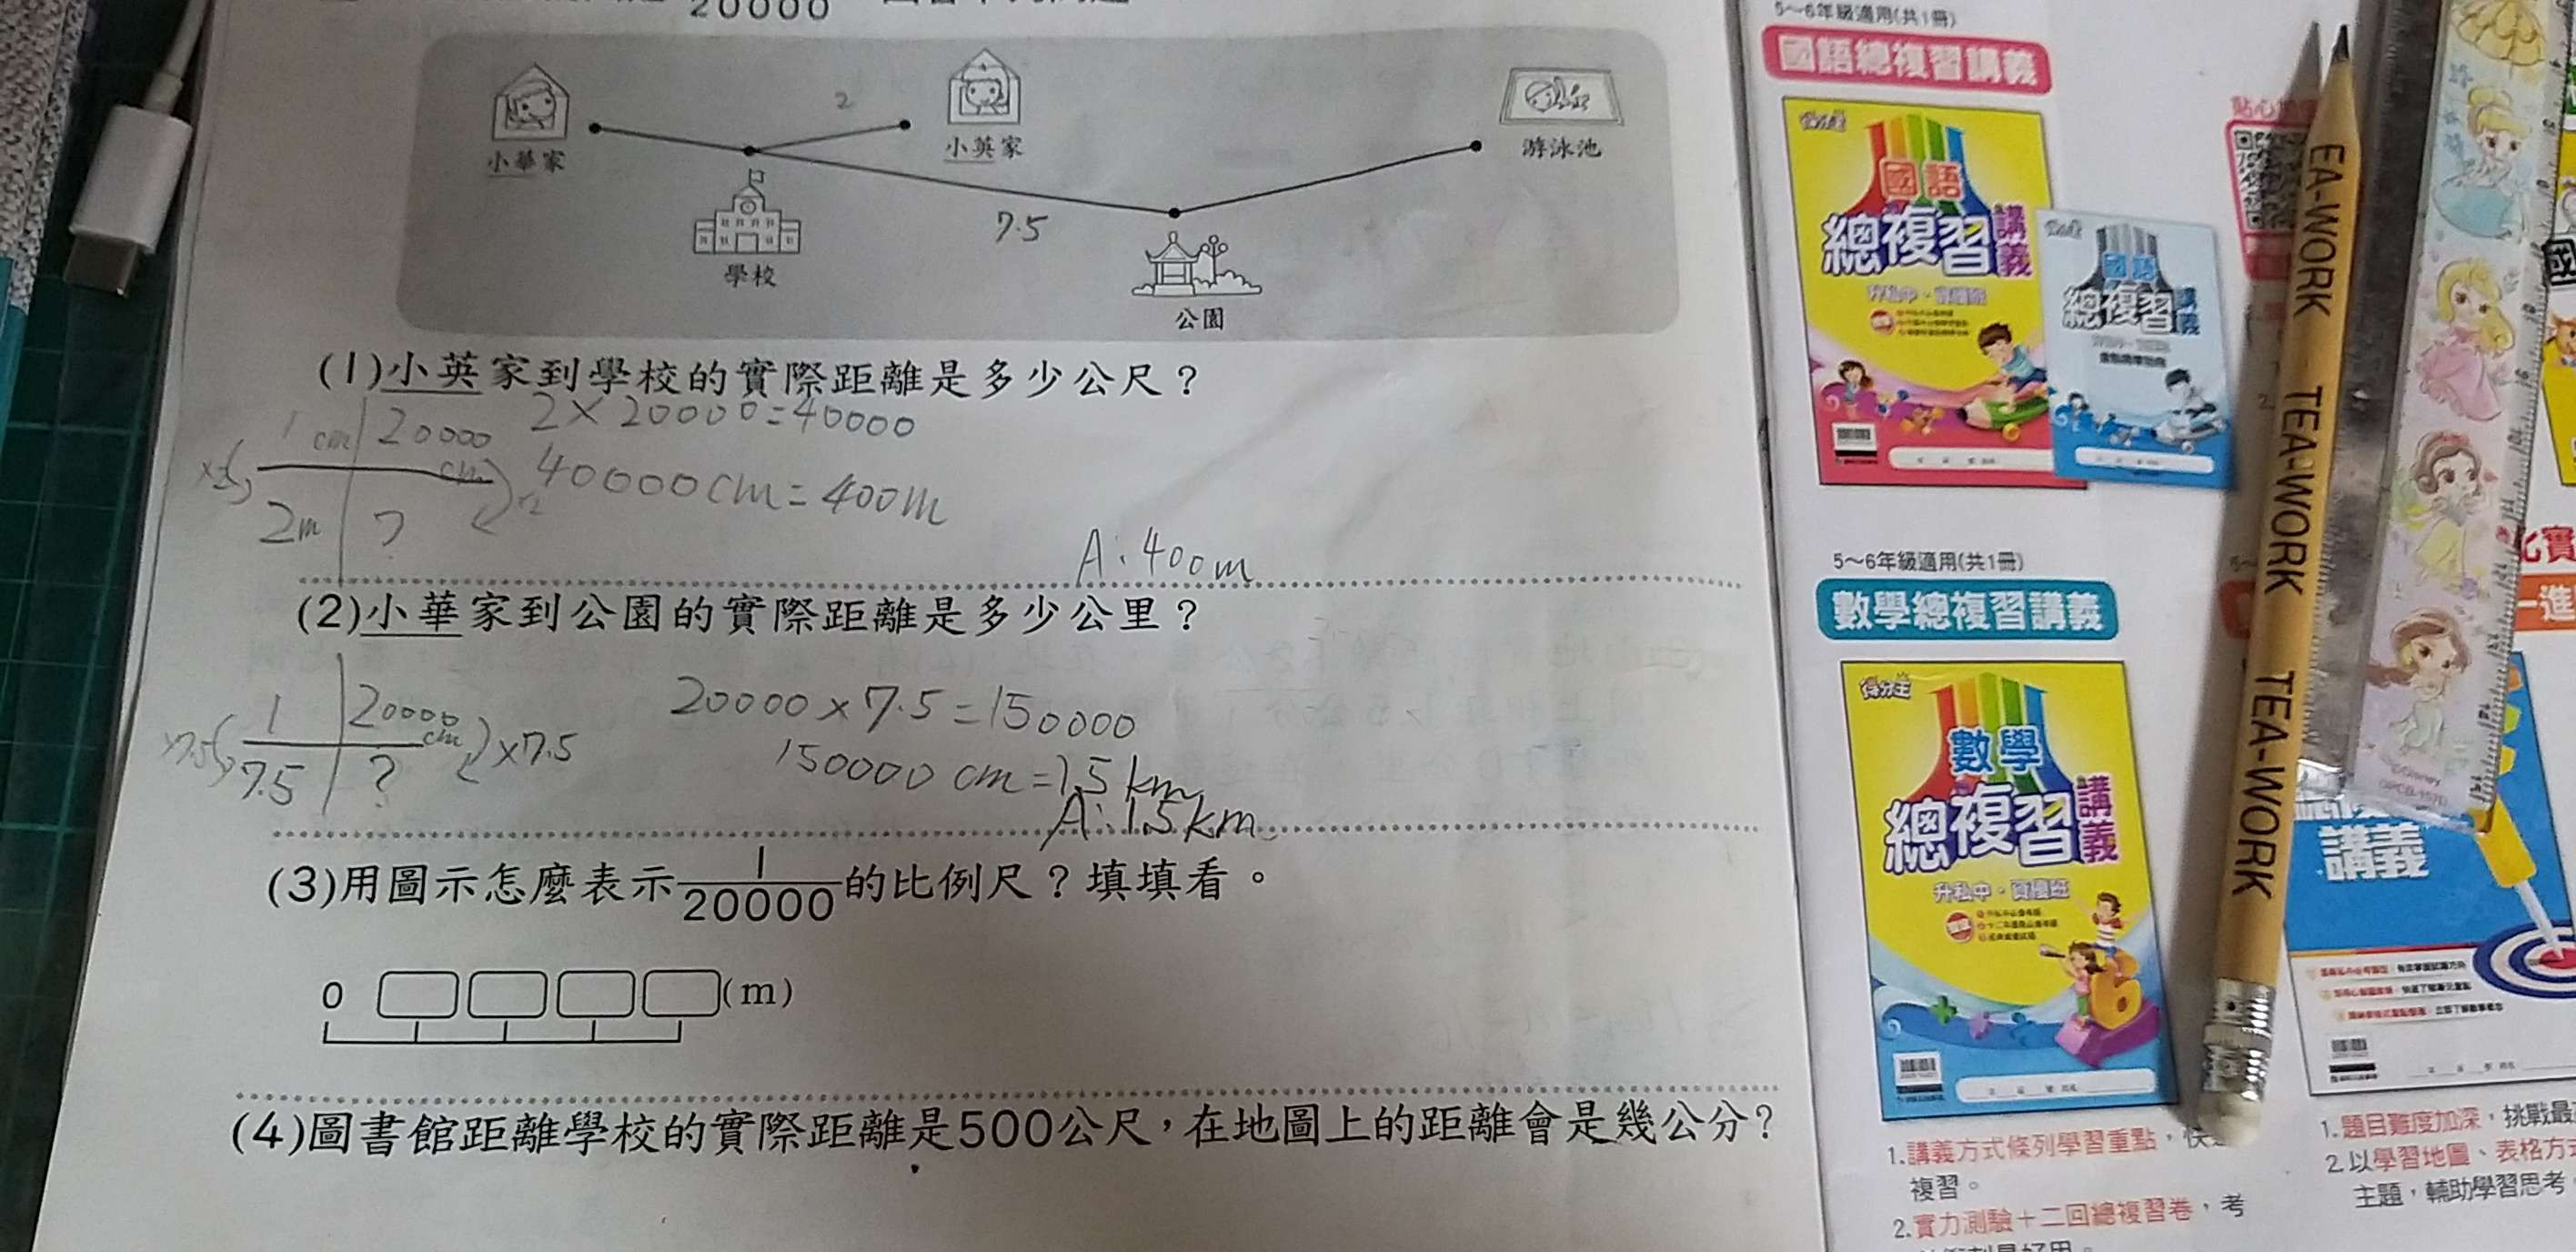 20000
2
小華家
小英家
游泳池
學校
7.5
公園
(1)小英家到學校的實際距離是多少公尺？
1cm 20000cm
2m ?
2×20000=40000
40000cm=400m
A:400m
(2)小華家到公園的實際距離是多少公里？
1 20000cm
×7.5
7.5 ?
20000×7.5=150000
150000cm=1.5km
A:1.5km
(3)用圖示怎麼表示1/20000的比例尺？填填看。
0 (m)
(4)圖書館距離學校的實際距離是500公尺，在地圖上的距離會是幾公分？
5～6年級適用(共1冊)
國語總複習講義
國語
總複習講義
升私中．資優班
國語
總複習講義
5～6年級適用(共1冊)
數學總複習講義
得分王
數學
總複習講義
升私中．資優班
1.講義方式條列學習重點，快
複習。
2.實力測驗＋二回總複習卷，考
貼心
EA-WORK TEA-WORK TEA-WORK
講義
1.題目難度加深，挑戰最
2.以學習地圖、表格方式
主題，輔助學習思考